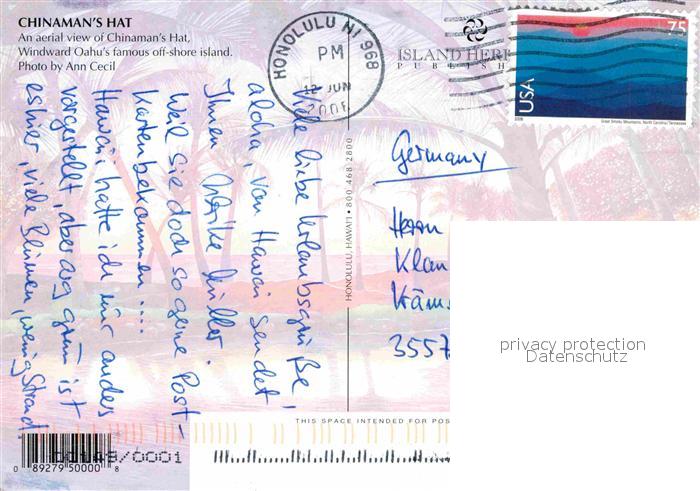 CHINAMAN'S HAT
An aerial view of Chinaman's Hat,
Windward Oahu's famous off-shore island.
Photo by Ann Cecil
HONOLULU HI 968
PM
12 JUN
2006
ISLAND HERI
PUBLISH
75
USA
2006
Great Smoky Mountains, North Carolina/Tennessee
Viele liebe Urlaubsgrüße,
aloha, von Hawaii sendet
Ihnen Müller.
Weil Sie doch so gerne Post-
karten bekommen ....
Hawaii hatte ich mir anders
vorgestellt, aber arg grün ist
es hier, viele Blumen, wenig Strand
HONOLULU, HAWAI'I • 800 468 2800
Germany
Herrn
Klau
Kräm
3557
privacy protection
Datenschutz
THIS SPACE INTENDED FOR POS
0 89279 50000 8